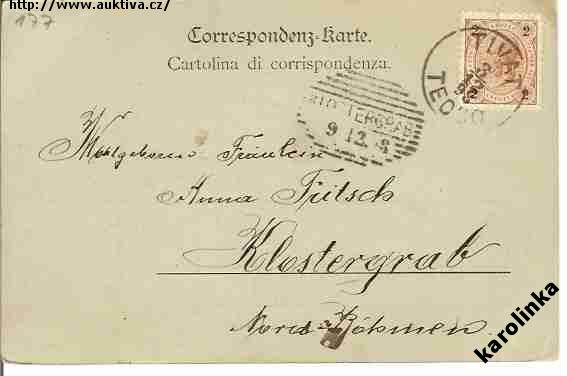 http://www.auktiva.cz/
177
Correspondenz-Karte.
Cartolina di corrispondenza.
2 2
TIVAT
TEODO
KLOSTERGRAB
9 12 8
Wohlgeborene Fräulein
Anna Fritsch
Klostergrab
Nord-Böhmen
karolinka